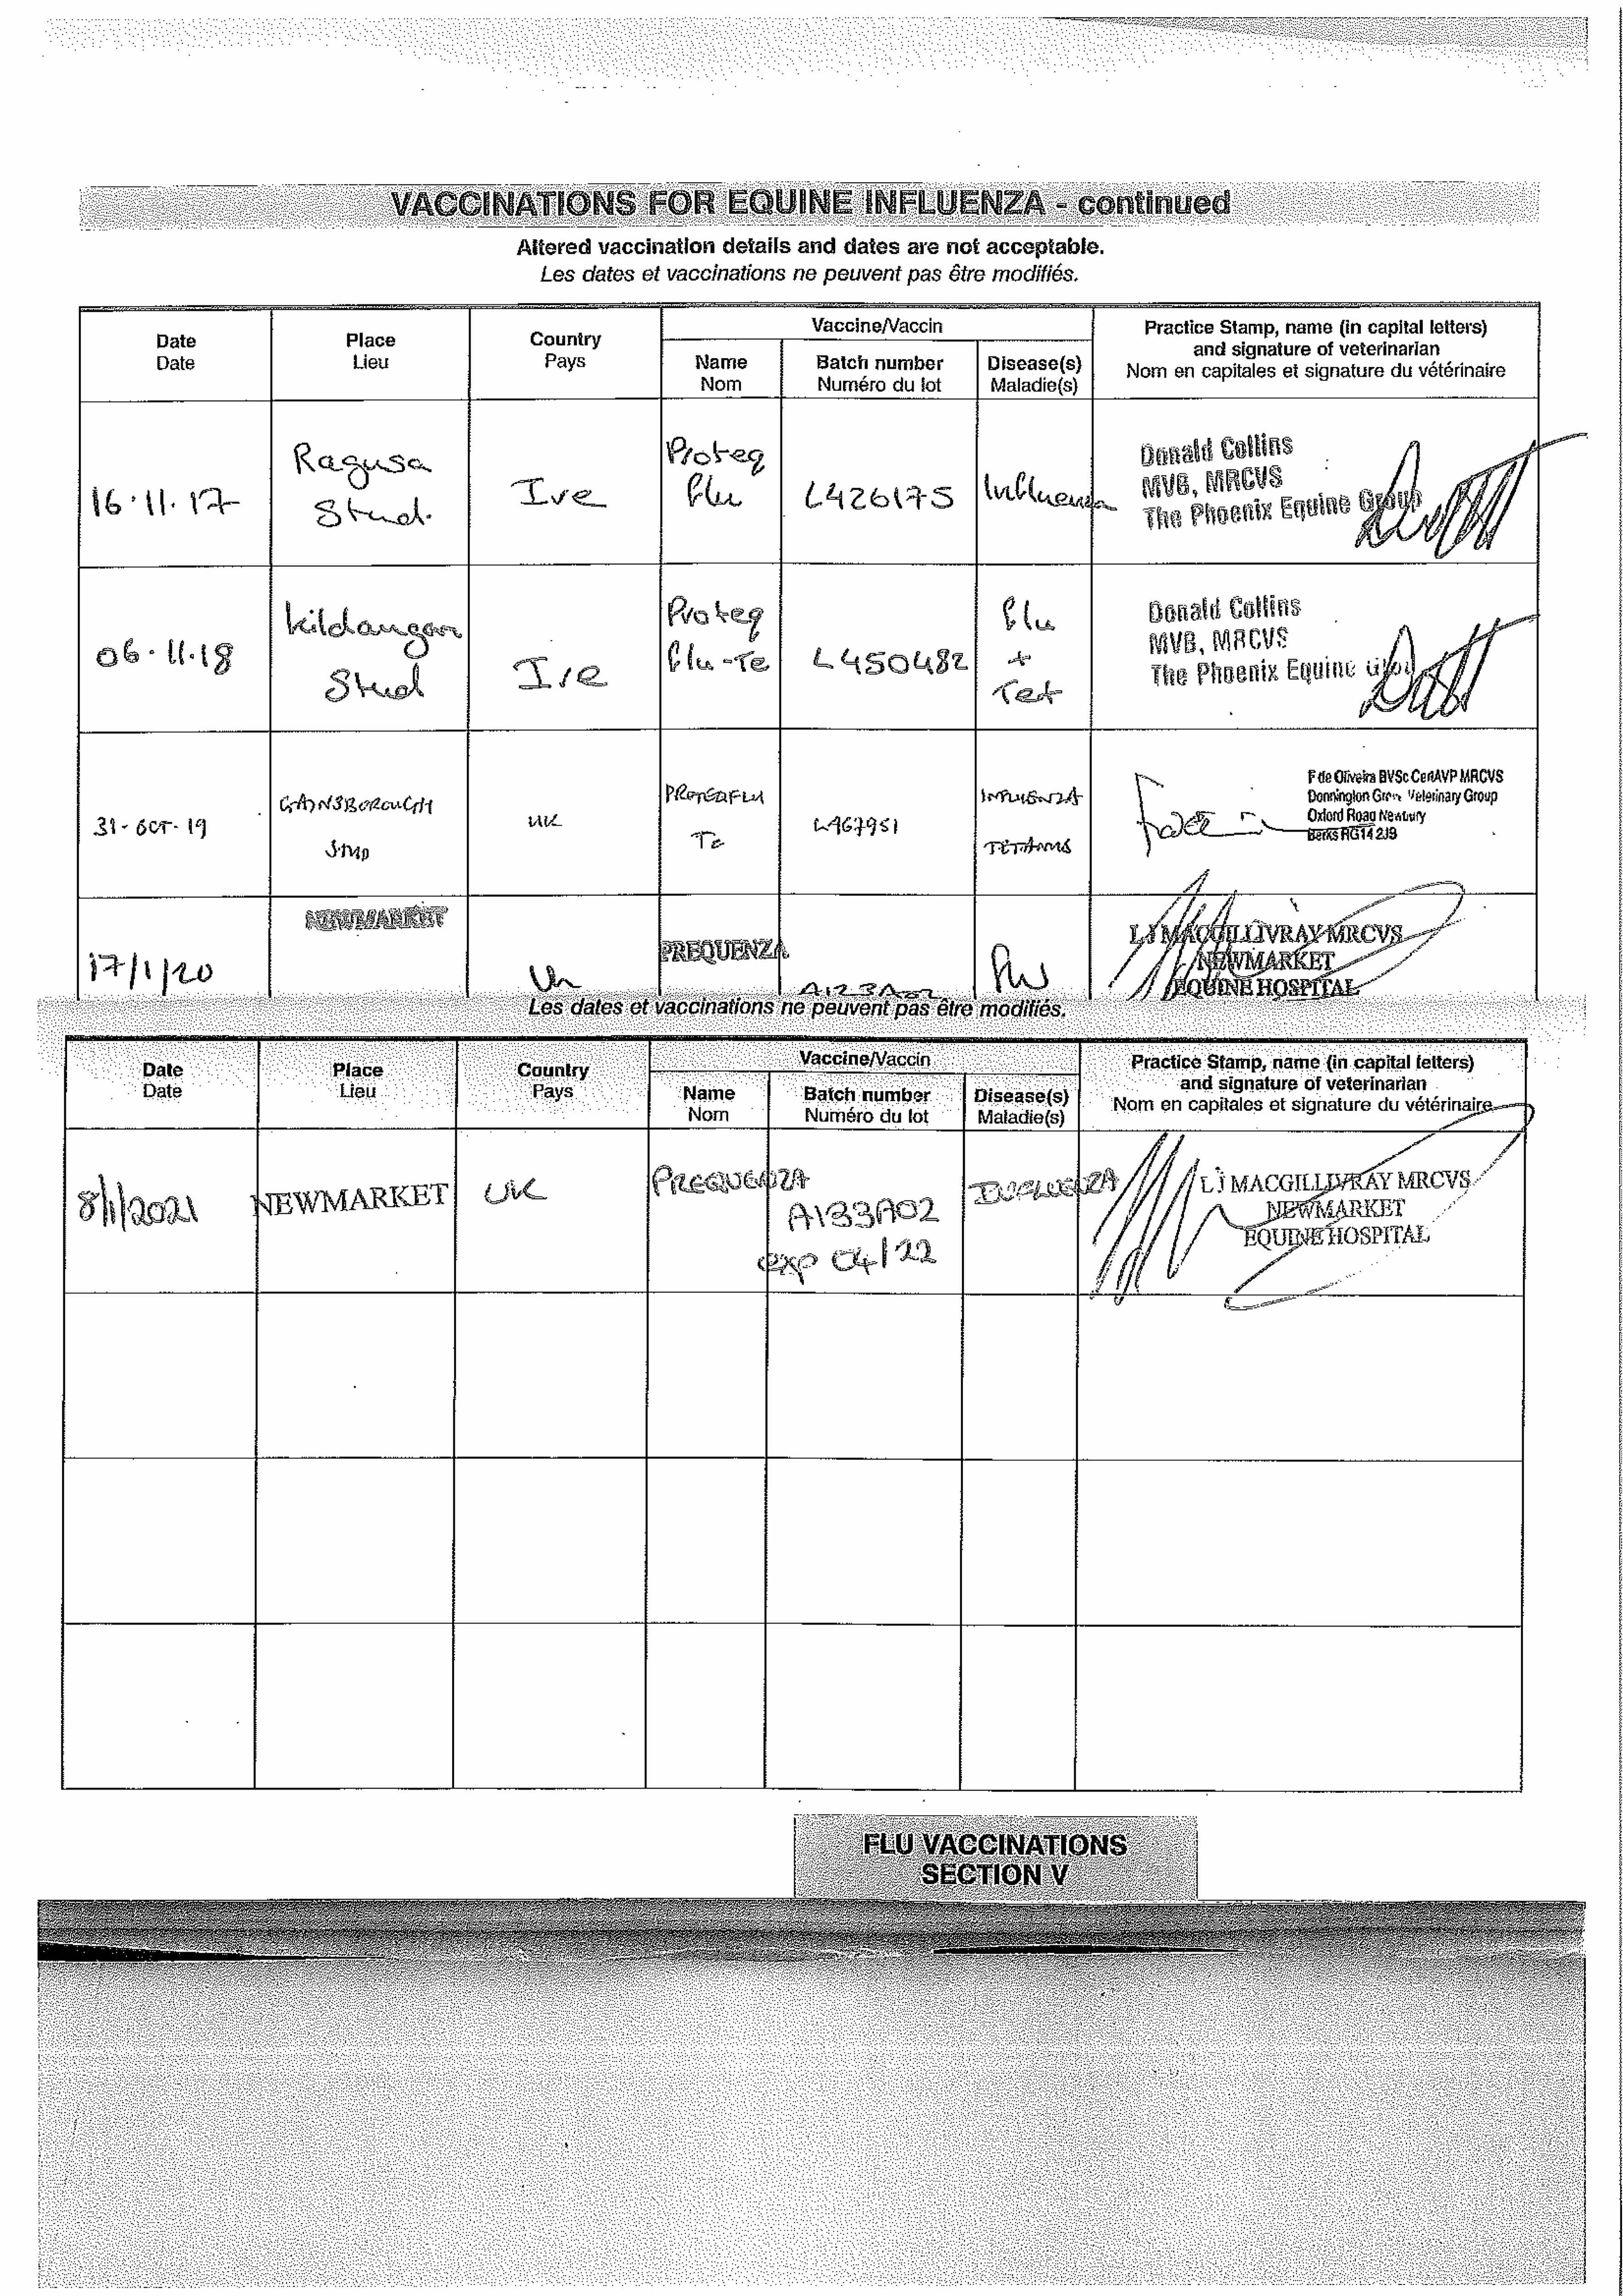 VACCINATIONS FOR EQUINE INFLUENZA - continued
Altered vaccination details and dates are not acceptable.
Les dates et vaccinations ne peuvent pas être modifiés.
Date
Date
Place
Lieu
Country
Pays
Vaccine/Vaccin
Name
Nom
Batch number
Numéro du lot
Disease(s)
Maladie(s)
Practice Stamp, name (in capital letters)
and signature of veterinarian
Nom en capitales et signature du vétérinaire
16.11.17
Ragusa
Stud.
Ire
Proteq
flu
L426175
Influenza
Donald Collins
MVB, MRCVS
The Phoenix Equine Group
06.11.18
Kildangan
Stud
Ire
Proteq
flu-Te
L450482
flu
+
Tet
Donald Collins
MVB, MRCVS
The Phoenix Equine
31-OCT-19
GAINSBOROUGH
STUD
UK
PROTEQFLU
Te
L467951
INFLUENZA
TETANUS
F de Oliveira BVSc CertAVP MRCVS
Donnington Grove Veterinary Group
Oxford Road Newbury
Berks RG14 2JB
17/1/20
NEWMARKET
UK
PREQUENZA
A123A02
flu
LJ MACGILLIVRAY MRCVS
NEWMARKET
EQUINE HOSPITAL
Les dates et vaccinations ne peuvent pas être modifiés.
Date
Date
Place
Lieu
Country
Pays
Vaccine/Vaccin
Name
Nom
Batch number
Numéro du lot
Disease(s)
Maladie(s)
Practice Stamp, name (in capital letters)
and signature of veterinarian
Nom en capitales et signature du vétérinaire
8/1/2021
NEWMARKET
UK
PREQUENZA
A133A02
exp 04/22
INFLUENZA
LJ MACGILLIVRAY MRCVS
NEWMARKET
EQUINE HOSPITAL
FLU VACCINATIONS
SECTION V